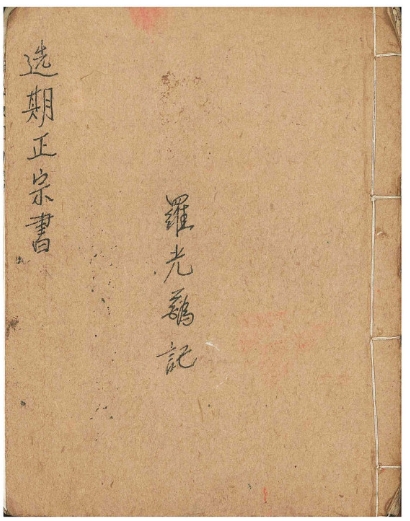 选期正宗書
羅光記